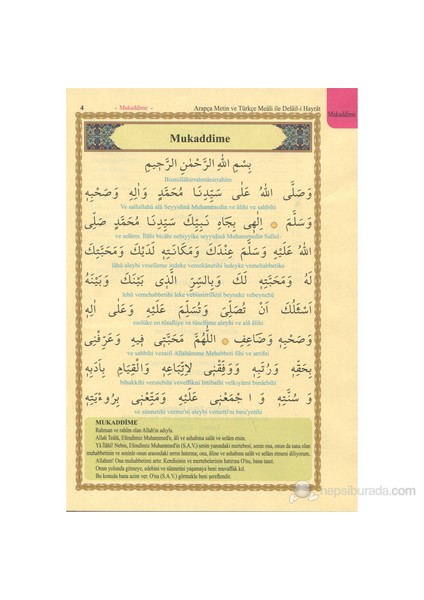 4
- Mukaddime -
Arapça Metin ve Türkçe Meâli ile Delâil-i Hayrât
Mukaddime
Mukaddime
بِسْمِ اللهِ الرَّحْمٰنِ الرَّحِيمِ
Bismillâhirrahmânirrahîm
وَصَلَّى اللهُ عَلٰى سَيِّدِنَا مُحَمَّدٍ وَاٰلِهِ وَصَحْبِهِ
Ve sallallahü alâ Seyyidinâ Muhammedin ve âlihi ve sahbihi
وَسَلَّمَ اِلٰهِى بِجَاهِ نَبِيِّكَ سَيِّدِنَا مُحَمَّدٍ صَلَّى
ve sellem. İlâhi bicâhi nebiyyike seyyidinâ Muhammedin Sallel-
اللهُ عَلَيْهِ وَسَلَّمَ عِنْدَكَ وَمَكَانَتِهِ لَدَيْكَ وَمَحَبَّتِكَ
lâhü aleyhi veselleme indeke vemekânetihi ledeyke vemehabbetike
لَهُ وَمَحَبَّتِهِ لَكَ وَبِالسِّرِّ الَّذِى بَيْنَكَ وَبَيْنَهُ
lehû vemehabbetihi leke vebissirrillezi beyneke vebeynehû
اَسْئَلُكَ اَنْ تُصَلِّىَ وَتُسَلِّمَ عَلَيْهِ وَعَلٰى اٰلِهِ
eselüke en tüsalliye ve tüsellime aleyhi ve alâ âlihi
وَصَحْبِهِ وَضَاعِفِ اللّٰهُمَّ مَحَبَّتِى فِيهِ وَعَرِّفْنِى
ve sahbihi vezaifi Allahümme Mehabbeti fihi ve arrifni
بِحَقِّهِ وَرُتَبِهِ وَوَفِّقْنِى لِاِتِّبَاعِهِ وَالْقِيَامِ بِاَدَبِهِ
bihakkihi verutebihi veveffıkni littibaihi velkıyâmi biedebihi
وَسُنَّتِهِ وَاجْمَعْنِى عَلَيْهِ وَمَتِّعْنِى بِرُؤْيَتِهِ
MUKADDİME
Rahman ve rahîm olan Allah'ın adıyla.
Allah Teâlâ, Efendimiz Muhammed'e, âli ve ashabına salât ve selâm etsin.
Yâ İlâhi! Nebin, Efendimiz Muhammed'in (S.A.V.) senin yanındaki mertebesi, senin ona, onun da sana olan
muhabbetinin ve seninle onun arasındaki sırrın hatırına; ona, âline ve ashabına salât ve selâm etmeni diliyorum.
Allahım! Ona muhabbetimi artır. Kendisinin ve mertebelerinin hatırına O'nu, bana tanıt.
Onun yolunda gitmeye, edebini ve sünnetini yaşamaya beni muvaffak kıl.
Bu konuda bana azim ver. O'nu (S.A.V.) görmekle beni şereflendir.
hepsiburada.com